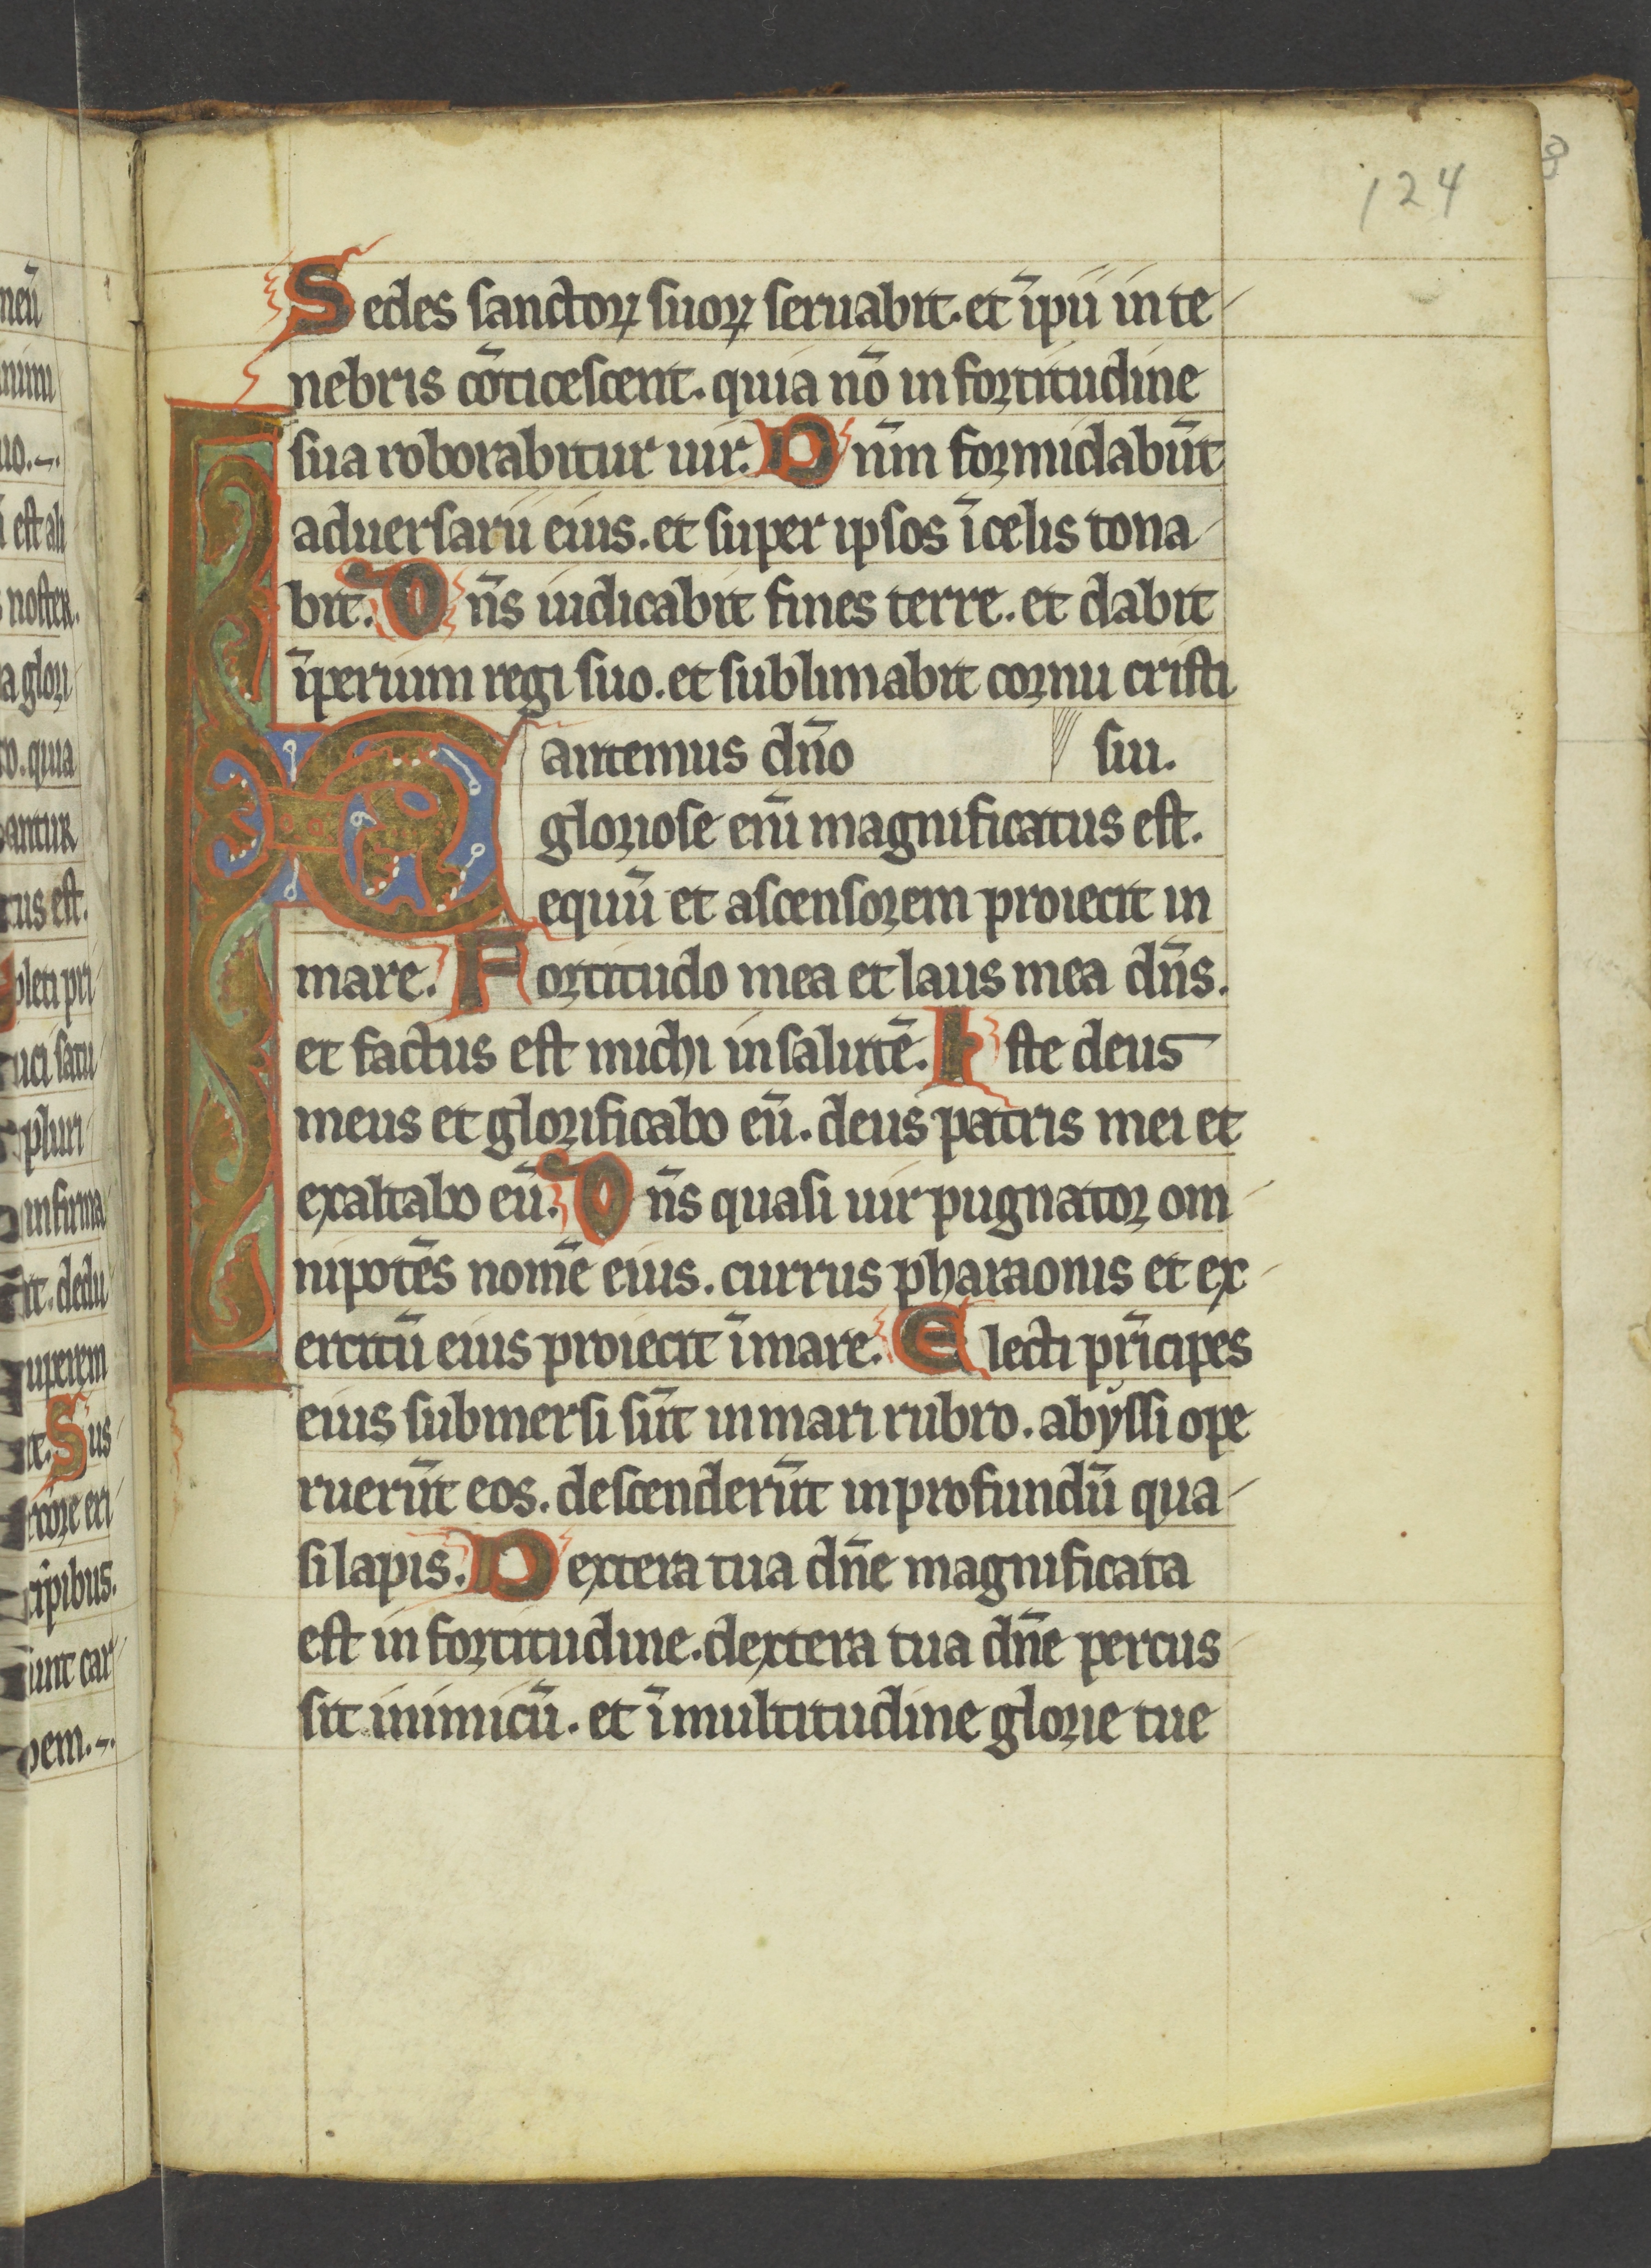 124
Sedes sanctoꝝ suoꝝ seruabit. et īpii in te
nebris cōticescent. quia nō in fortitudine
sua roborabitur uir. Dn̄m formidabūt
aduersarii eius. et super ipsos ī celis tona
bit. Dn̄s iudicabit fines terre. et dabit
īperium regi suo. et sublimabit cornu cristi
antemus dn̄o sui.
gloriose eni̅ magnificatus est.
equū et ascensorem proiecit in
mare. Fortitudo mea et laus mea dn̄s.
et factus est michi in salutē. Iste deus
meus et glorificabo eū. deus patris mei et
exaltabo eū. Dn̄s quasi uir pugnator om
nipotēs nomē eius. currus pharaonis et ex
ercitū eius proiecit ī mare. Electi pr̄icipes
eius submersi sūt in mari rubro. abyssi ope
ruerūt eos. descenderūt in profundū qua
si lapis. Dextera tua dn̄e magnificata
est in fortitudine. dextera tua dn̄e percus
sit inimicū. et ī multitudine glorie tue